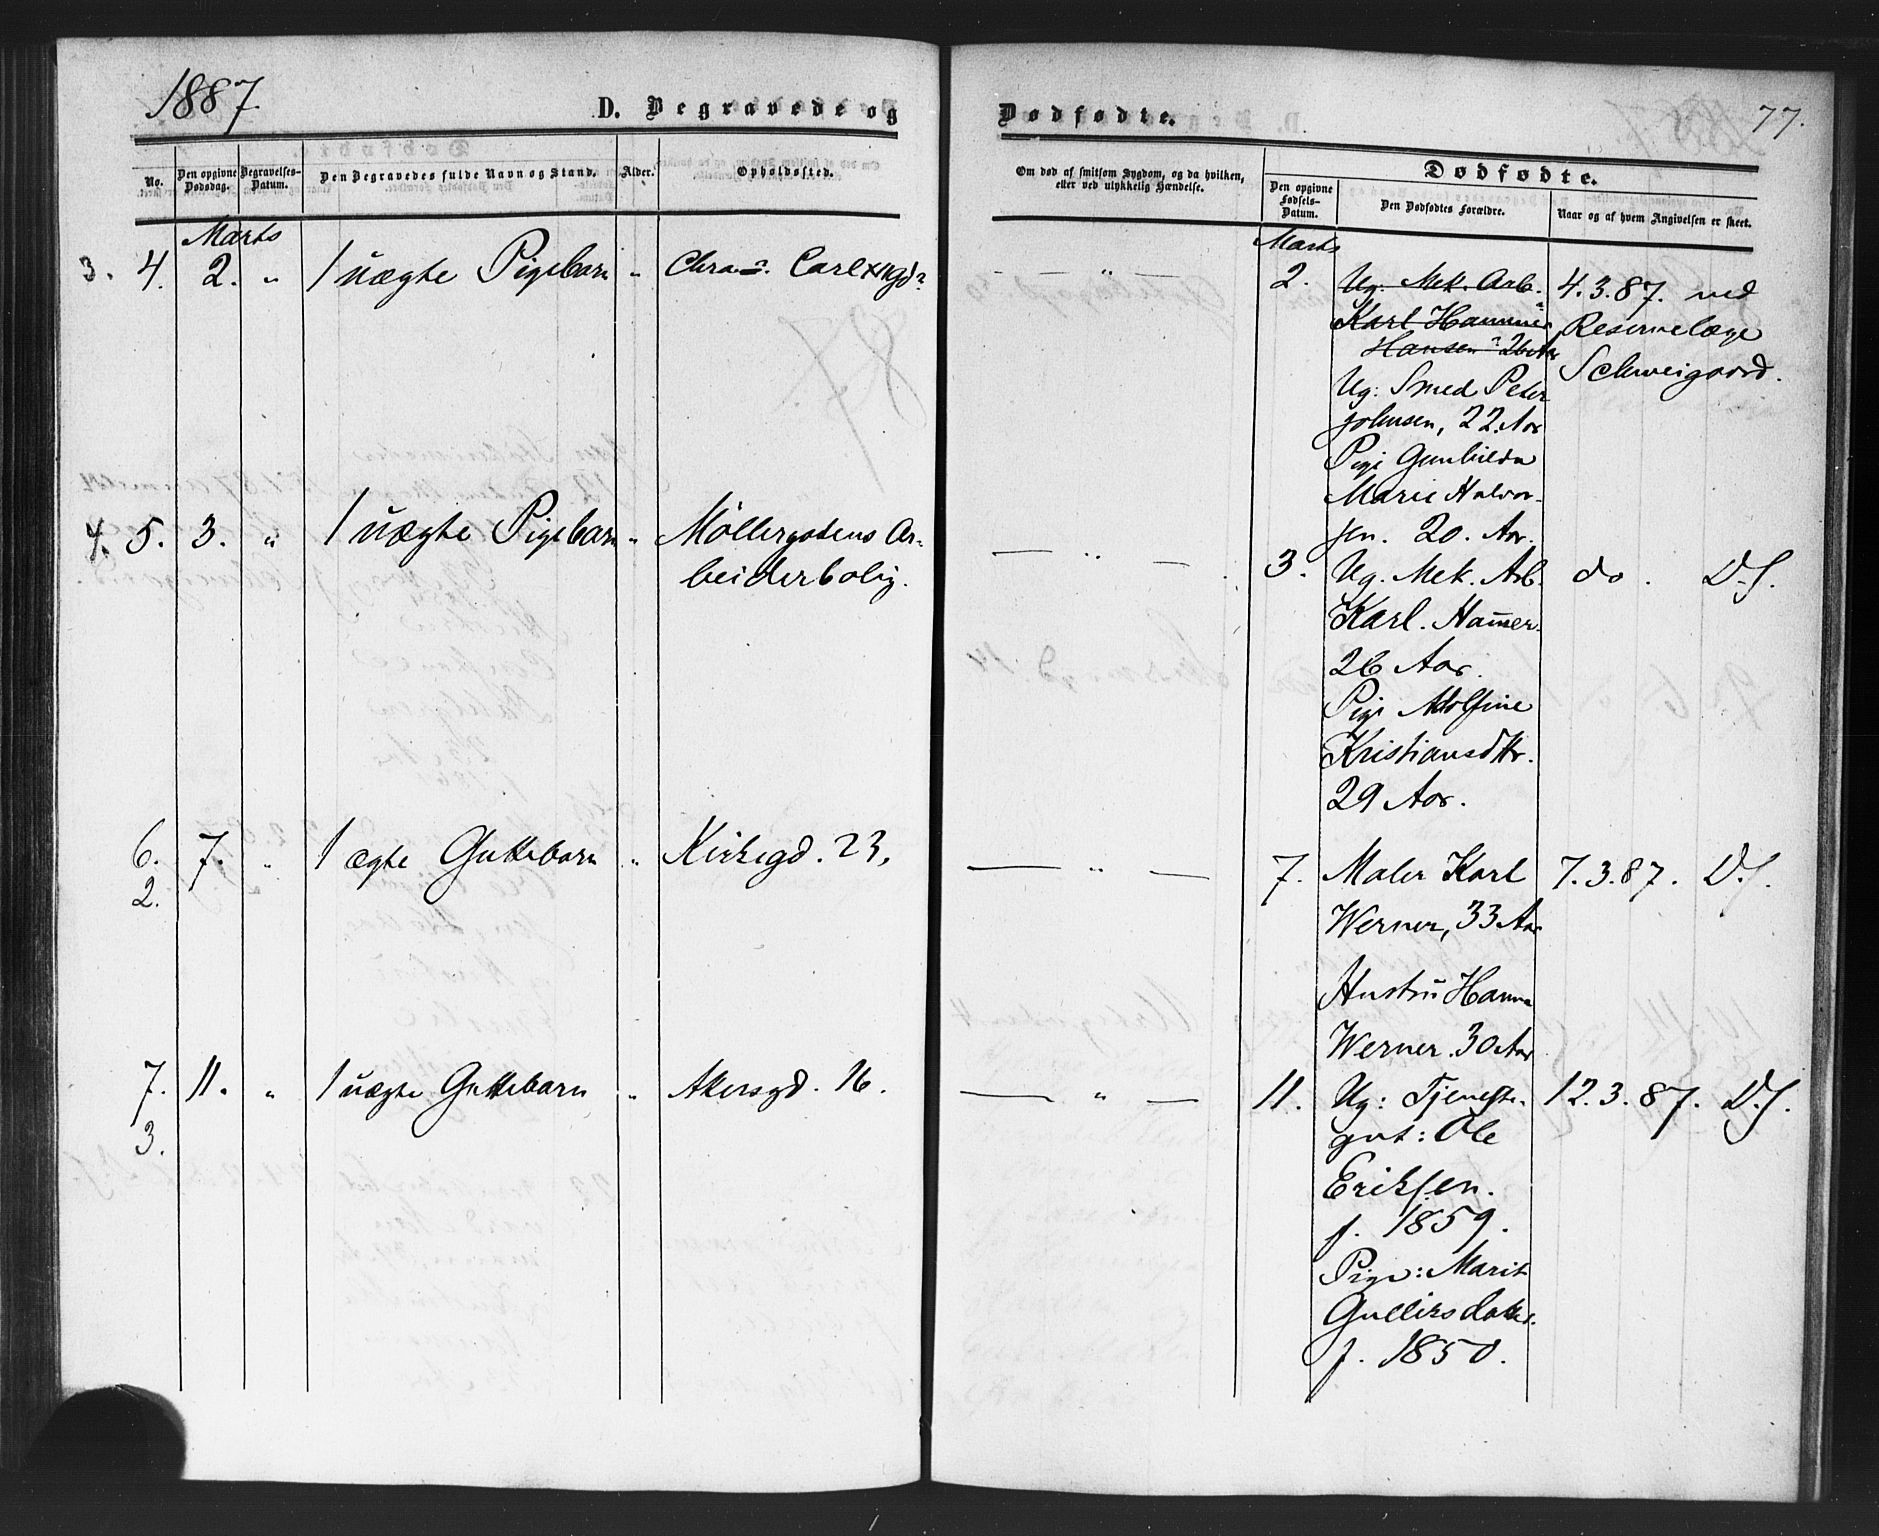 1887
D. Begravede og
No.
Den opgivne Dødsdag.
Begravelses-Datum.
Den Begravedes fulde Navn og Stand.
Alder.
Opholdssted.
Marts
3. 4. 2. „ 1 uægte Pigebarn „
4. 5. 3. „ 1 uægte Pigebarn „ Møllergadens Ar-
beiderbolig.
6. 7. „ 1 ægte Guttebarn „ Kirkegd. 23.
2.
7. 11. „ 1 uægte Guttebarn „ Akersgd. 16.
3.
Dødfødte.
77.
Om død af smitsom Sygdom, og da hvilken,
eller ved ulykkelig Hændelse.
Dødfødte.
Den opgivne
Fødsels-
Datum.
Den Dødfødtes Forældre.
Naar og af hvem Angivelsen er skeet.
Marts
— „ — 2. Ug. Mek. Arb. 4.3.87. ved
Karl Hammer Reservelæge
Hansen 26 Aar Schweigaard.
Ug: Smed Peter
Johnsen, 22 Aar
Pige Gunhilda
Marie Halvor-
sen. 20. Aar.
— „ — 3. Ug. Mek. Arb. do. D.S.
Karl. Ham̄er.
26 Aar.
Pige Adolfine
Kristiansdtr.
29 Aar.
— „ — 7. Maler Karl 7.3.87. D.S.
Werner, 33 Aar
Hustru Hanna
Werner. 30 Aar
— „ — 11. Ug: Tjeneste- 12.3.87. D.S.
gut: Ole
Eriksen.
f. 1859.
Pige: Marit
Gulliksdatter.
f. 1850.